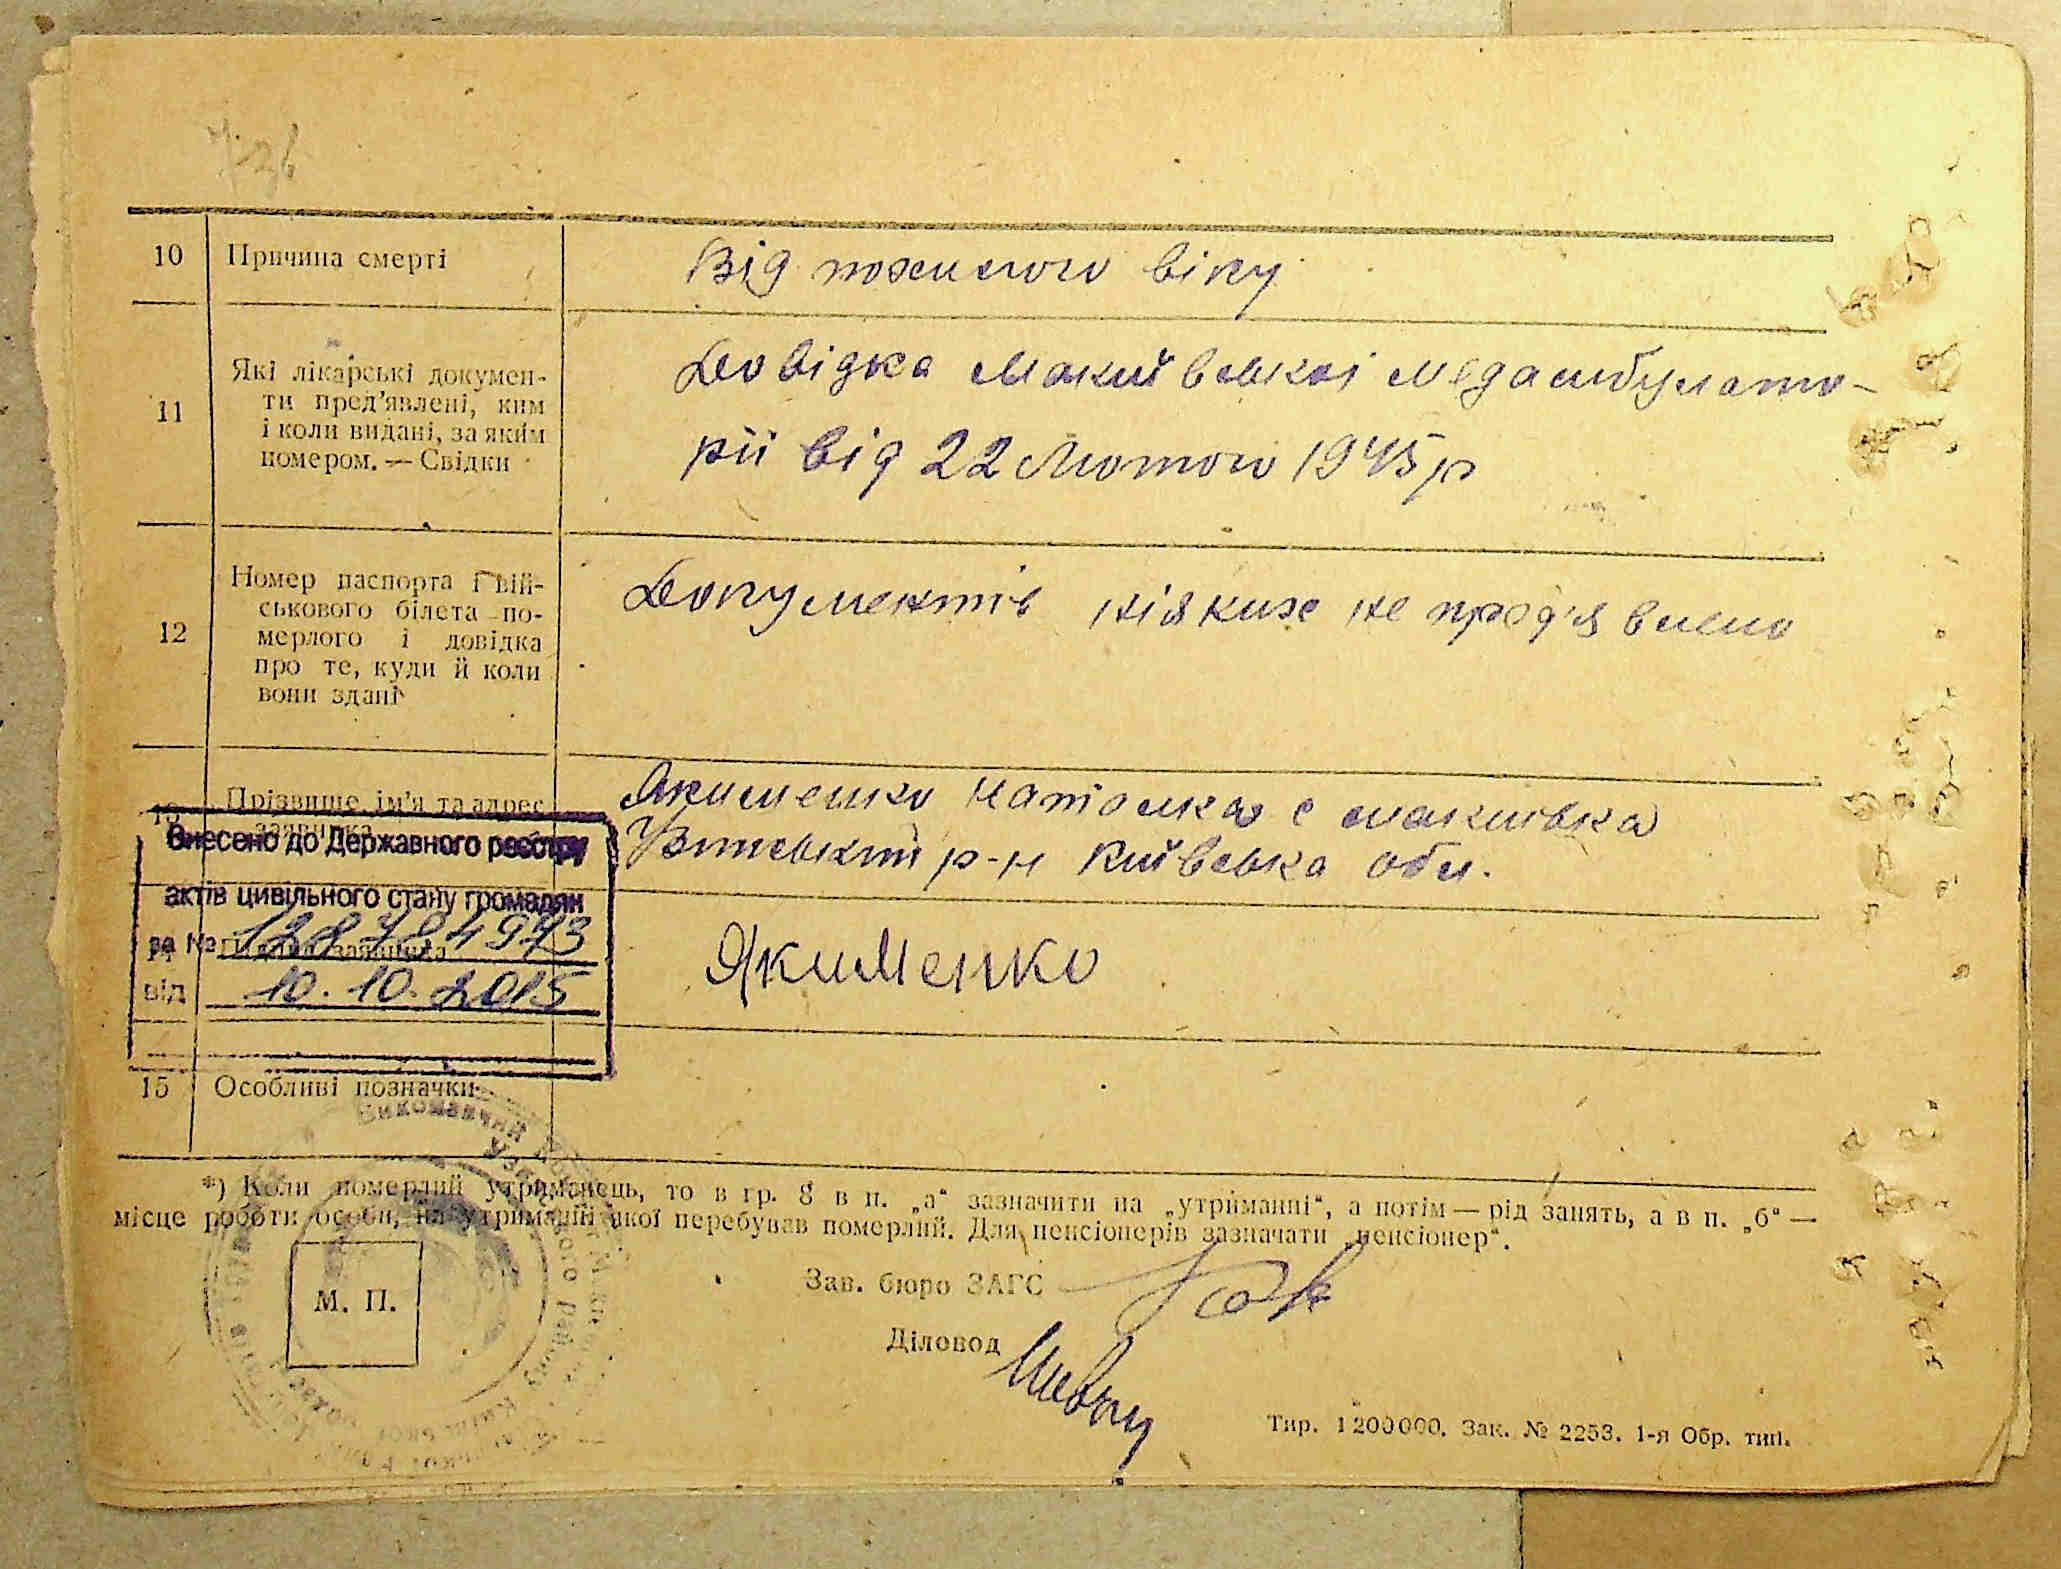 10 Причина смерті Від похилого віку
11 Які лікарські докумен-
ти пред'явлені, ким
і коли видані, за яким
номером. — Свідки
Довідка Макиївської медамбулато-
рії від 22 Лютого 1945 р
12 Номер паспорта і вій-
ськового білета по-
мерлого і довідка
про те, куди й коли
вони здані
Документів ніяких не пред'явлено
13 Прізвище, ім'я та адрес
заявника
Якименко Наталка с Макиївка
р-н Київська обл.
Внесено до Державного реєстру
актів цивільного стану громадян
за № 128784973
від 10.10.2015
заявника
Якименко
15 Особливі позначки
*) Коли померлий утриманець, то в гр. 8 в п. „а“ зазначити на „утриманні“, а потім — рід занять, а в п. „б“ —
місце роботи особи, на утриманні якої перебував померлий. Для пенсіонерів зазначати „пенсіонер“.
М. П.
Зав. бюро ЗАГС
Діловод
Тир. 1200000. Зак. № 2253. 1-я Обр. тип.